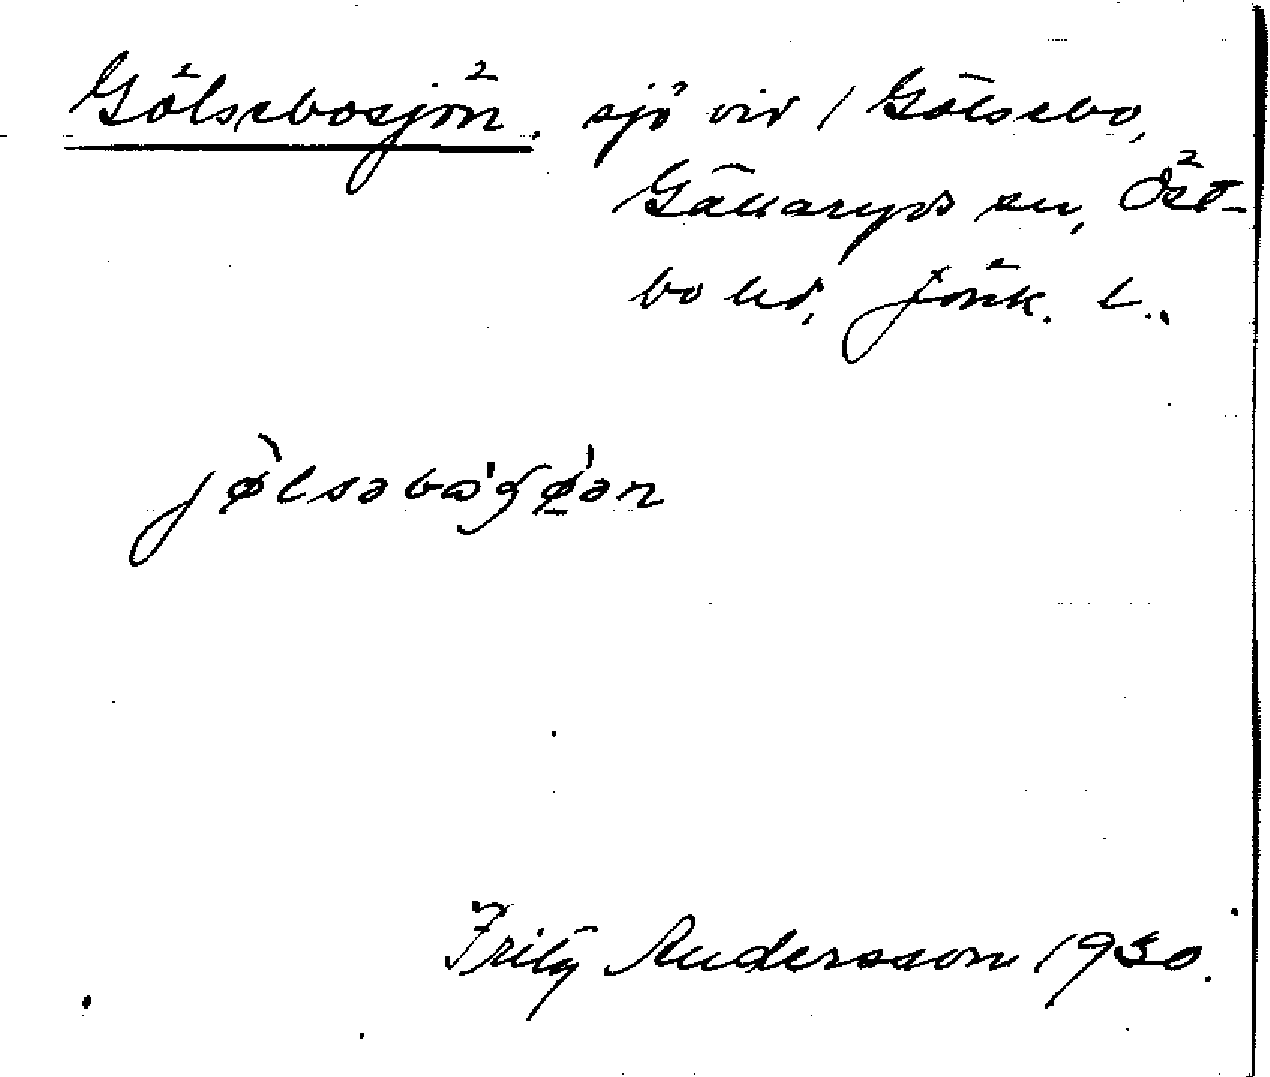 Gölsebosjön, sjö vid 1 Gölsebo,
Gällaryds sn, Öst-
bo hd, Jönk. l.
jø̀lsəbɷ'ʃø̀ən
Fritz Andersson 1930.